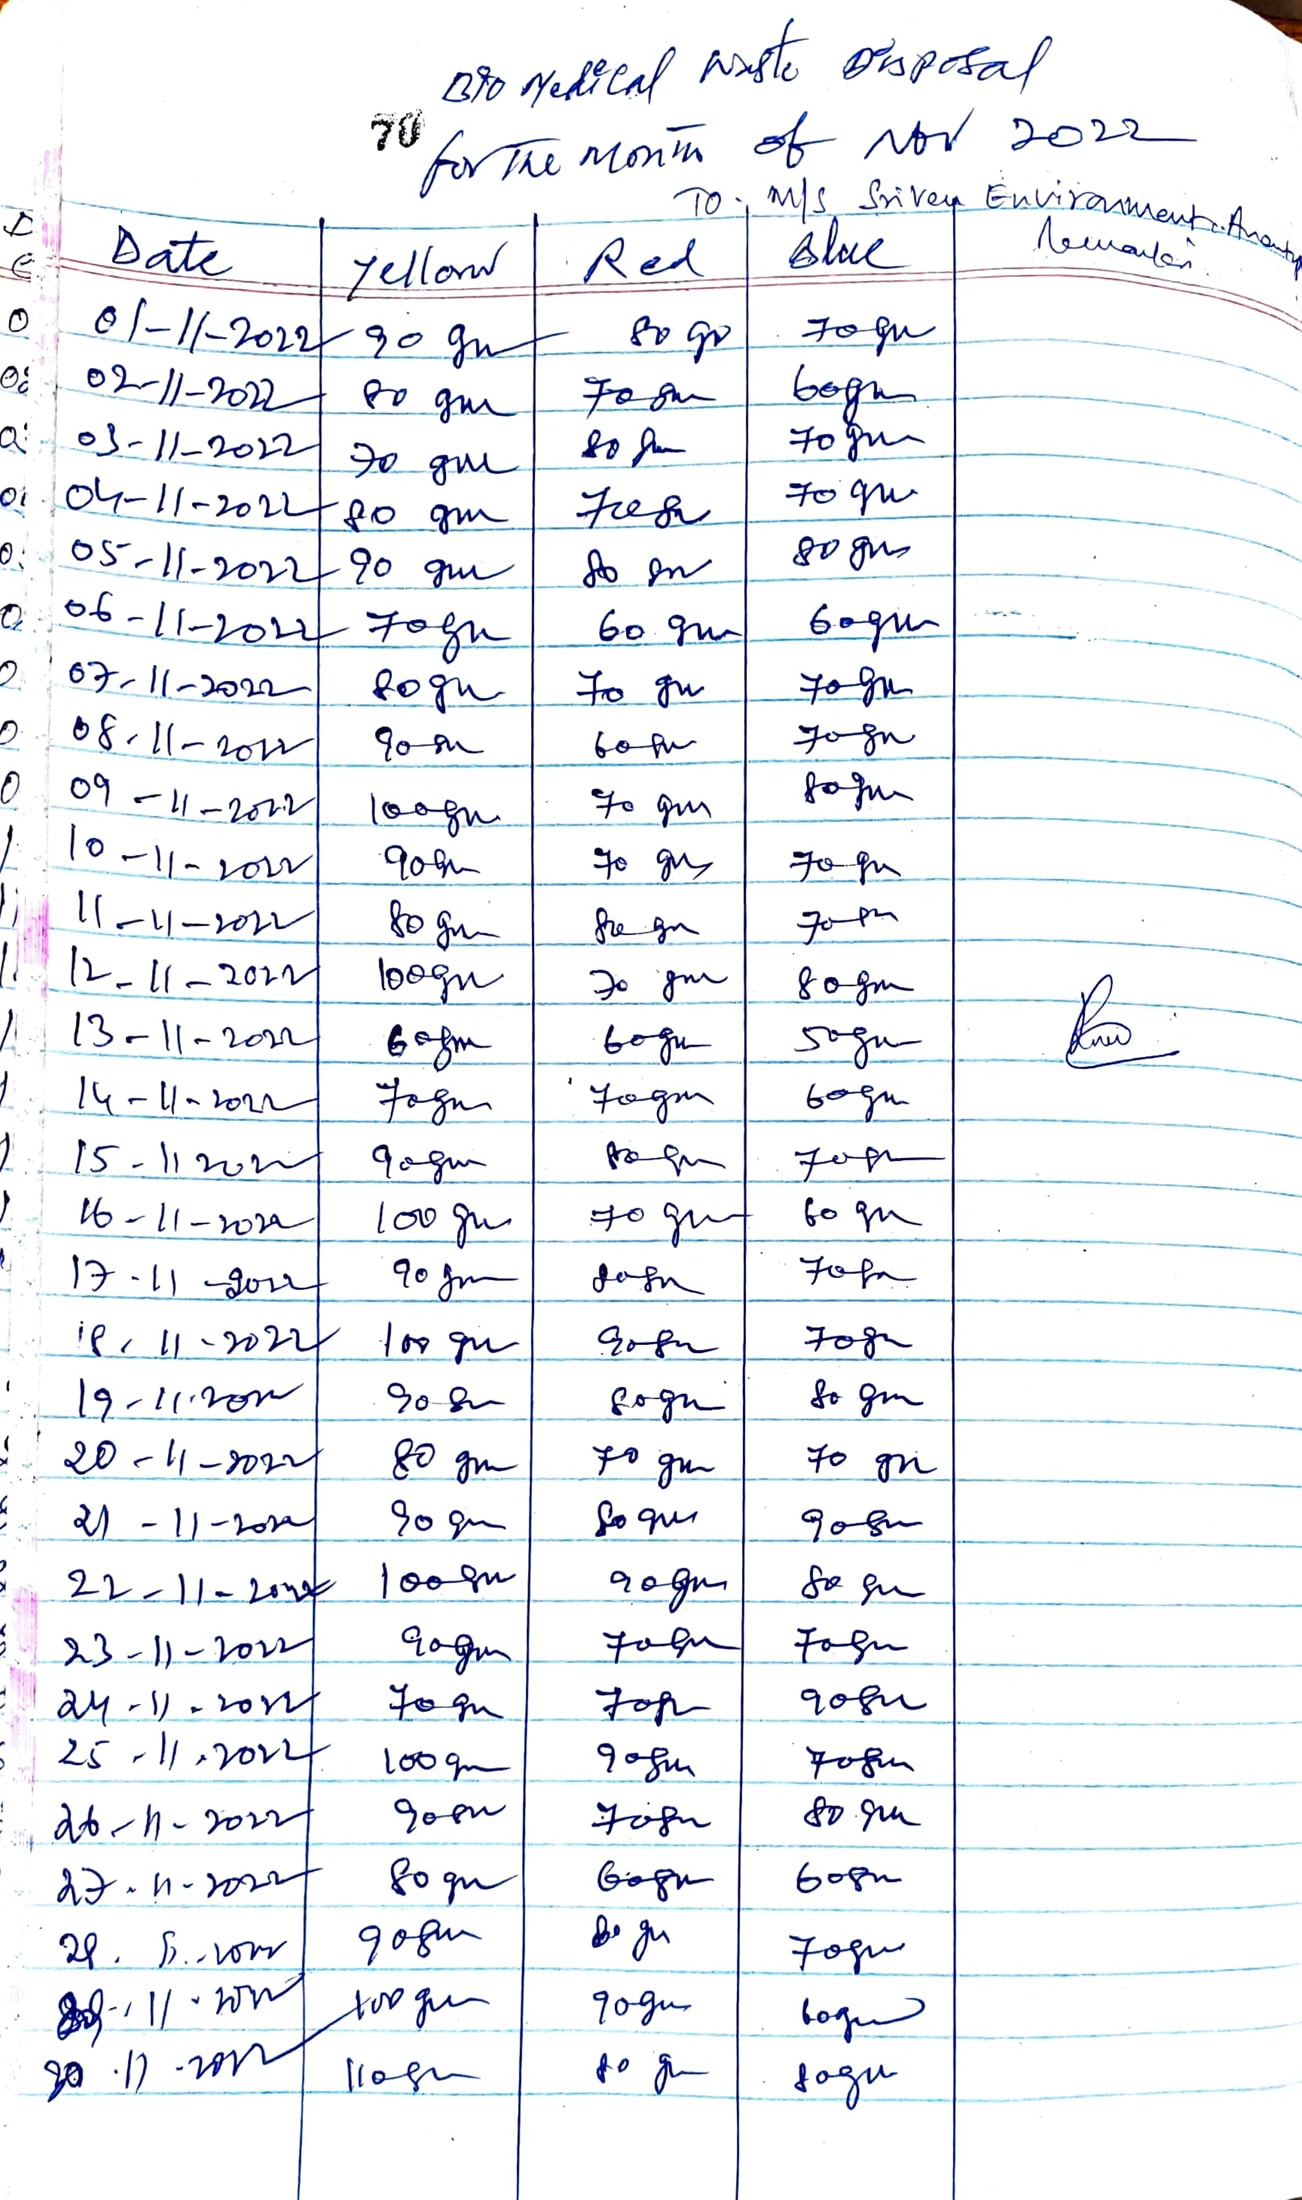 Bio Medical Waste Disposal
70
for The Month of Nov 2022
To. M/S Sriven Environment.
Date Yellow Red Blue Remarks
01-11-2022 90 gm 80 gm 70 gm
02-11-2022 80 gm 70 gm 60 gm
03-11-2022 70 gm 80 gm 70 gm
04-11-2022 80 gm 70 gm 70 gm
05-11-2022 90 gm 80 gm 80 gm
06-11-2022 70 gm 60 gm 60 gm
07-11-2022 80 gm 70 gm 70 gm
08-11-2022 90 gm 60 gm 70 gm
09-11-2022 100 gm 70 gm 80 gm
10-11-2022 90 gm 70 gm 70 gm
11-11-2022 80 gm 80 gm 70 gm
12-11-2022 100 gm 70 gm 80 gm
13-11-2022 60 gm 60 gm 50 gm
14-11-2022 70 gm 70 gm 60 gm
15-11 2022 90 gm 80 gm 70 gm
16-11-2022 100 gm 70 gm 60 gm
17-11-2022 90 gm 80 gm 70 gm
18-11-2022 100 gm 90 gm 70 gm
19-11-2022 90 gm 80 gm 80 gm
20-11-2022 80 gm 70 gm 70 gm
21-11-2022 90 gm 80 gm 90 gm
22-11-2022 100 gm 90 gm 80 gm
23-11-2022 90 gm 70 gm 70 gm
24-11-2022 70 gm 70 gm 90 gm
25-11-2022 100 gm 90 gm 70 gm
26-11-2022 90 gm 70 gm 80 gm
27-11-2022 80 gm 60 gm 60 gm
28.11.2022 90 gm 80 gm 70 gm
29-11-2022 100 gm 90 gm 60 gm
30.11.2022 110 gm 80 gm 80 gm